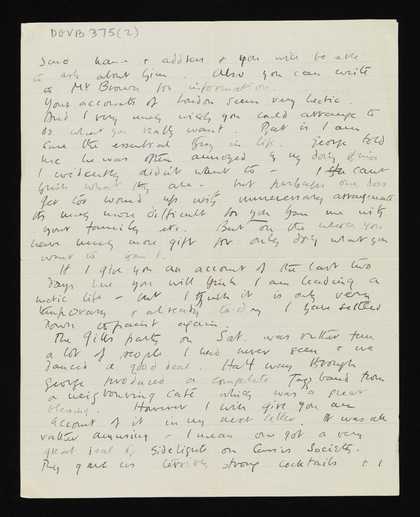 DOVB 375(2)
Send name & address & you will be able
to ask about him. Also you can write
to Mr Brown for information.
Your accounts of London seem very hectic.
And I very much wish you could arrange to
do what you really want. That is I am
sure the essential thing in life. George told
me he was often annoyed by my doing things
I evidently didn't want to - I can't
think what they are - but perhaps one does
get too wound up with unnecessary arrangements
It's much more difficult for you than me with
your family etc. But on the whole you
have much more gift for only doing what you
want to than I.
If I give you an account of the last two
days you will think I am leading a
hectic life - but I think it is only very
temporary & already today I have settled
down to paint again.
The Gills party on Sat. was rather fun
a lot of people I had never seen & we
danced a good deal. Half way through
George produced a complete Jazz band from
a neighbouring café which was a great
blessing. However I will give you an
account of it in my next letter. It was all
rather amusing - I mean one got a very
great deal of sidelights on Cassis Society.
They gave us terribly strong cocktails & I